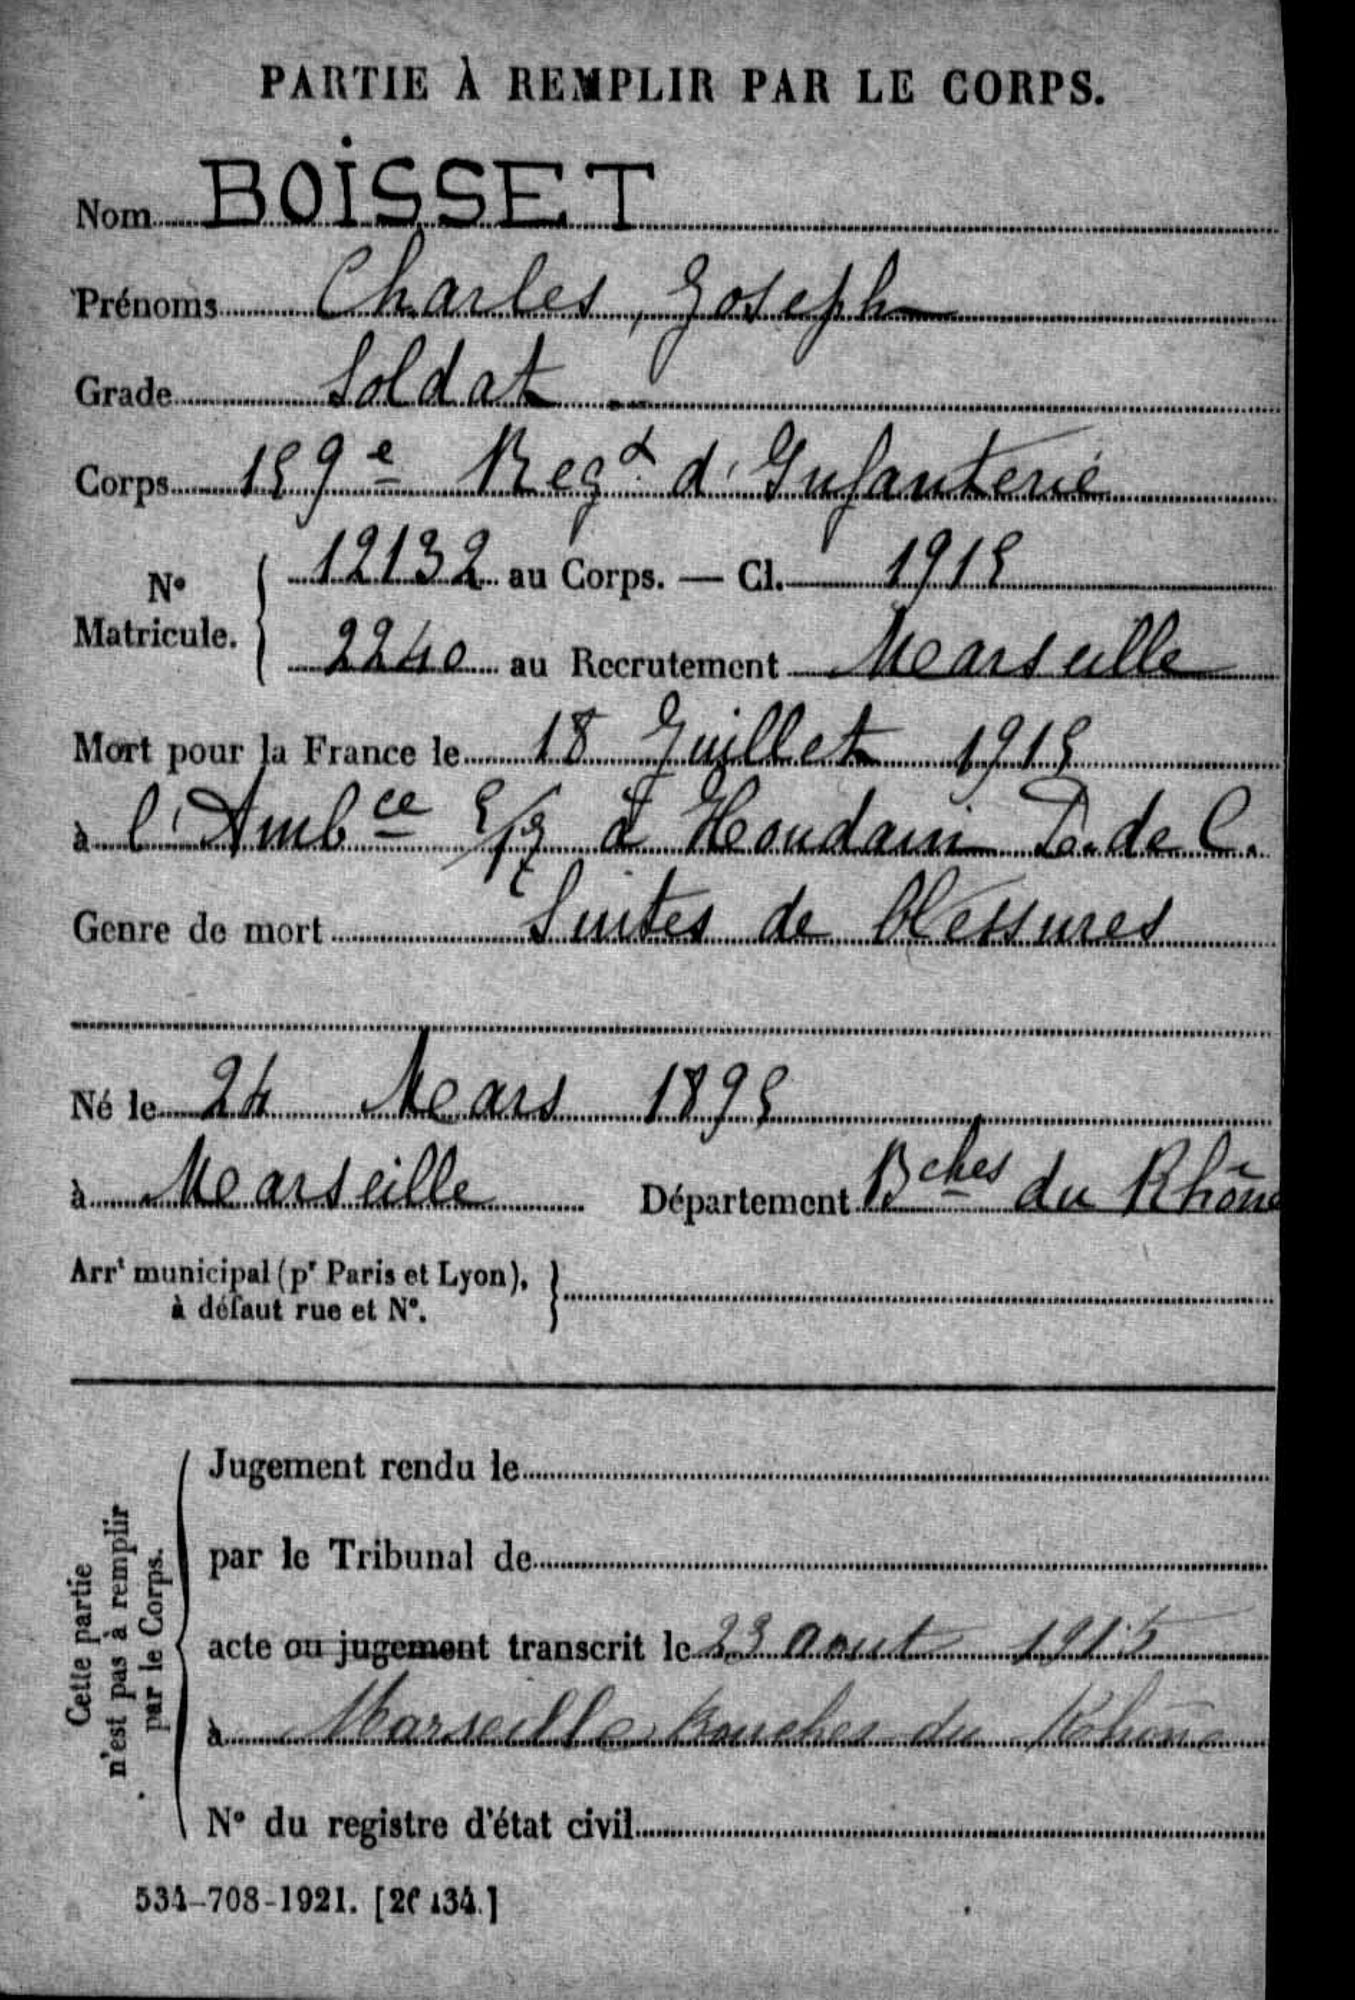 PARTIE À REMPLIR PAR LE CORPS.
Nom BOISSET
Prénoms Charles, Joseph
Grade Soldat
Corps 159e Regt d'Infanterie
N° Matricule. 12132 au Corps. — Cl. 1915
2240 au Recrutement Marseille
Mort pour la France le 18 Juillet 1915
à l'Ambce à Houdain P. de C.
Genre de mort Suites de blessures
Né le 24 Mars 1895
à Marseille Département Bches du Rhône
Arrt municipal (pr Paris et Lyon),
à défaut rue et N°.
Cette partie
n'est pas à remplir
par le Corps.
Jugement rendu le
par le Tribunal de
acte ou jugement transcrit le 23 aout 1915
à Marseille Bouches du Rhône
N° du registre d'état civil
534-708-1921. [26134.]